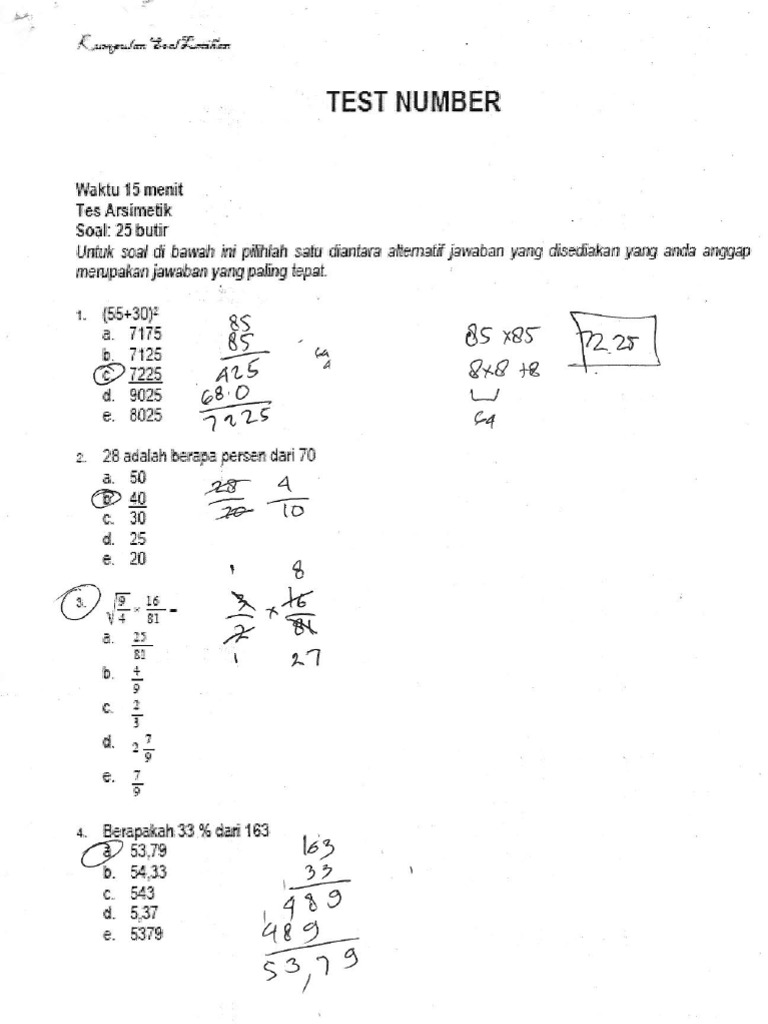 Kumpulan Soal Latihan
TEST NUMBER
Waktu 15 menit
Tes Arsimetik
Soal: 25 butir
Untuk soal di bawah ini pilihlah satu diantara alternatif jawaban yang disediakan yang anda anggap
merupakan jawaban yang paling tepat.
1. (55+30)²
a. 7175
b. 7125
c. 7225
d. 9025
e. 8025
85
85
425
68.0
7225
64
4
85 x85
8x8 +8
64
72.25
2. 28 adalah berapa persen dari 70
a. 50
b. 40
c. 30
d. 25
e. 20
28/70 4/10
3. √9/4 × 16/81 =
a. 25/81
b. 4/9
c. 2/3
d. 2 7/9
e. 7/9
1 8
3/2 x 16/81
1 27
4. Berapakah 33 % dari 163
a. 53,79
b. 54,33
c. 543
d. 5,37
e. 5379
163
33
489
489
53,79